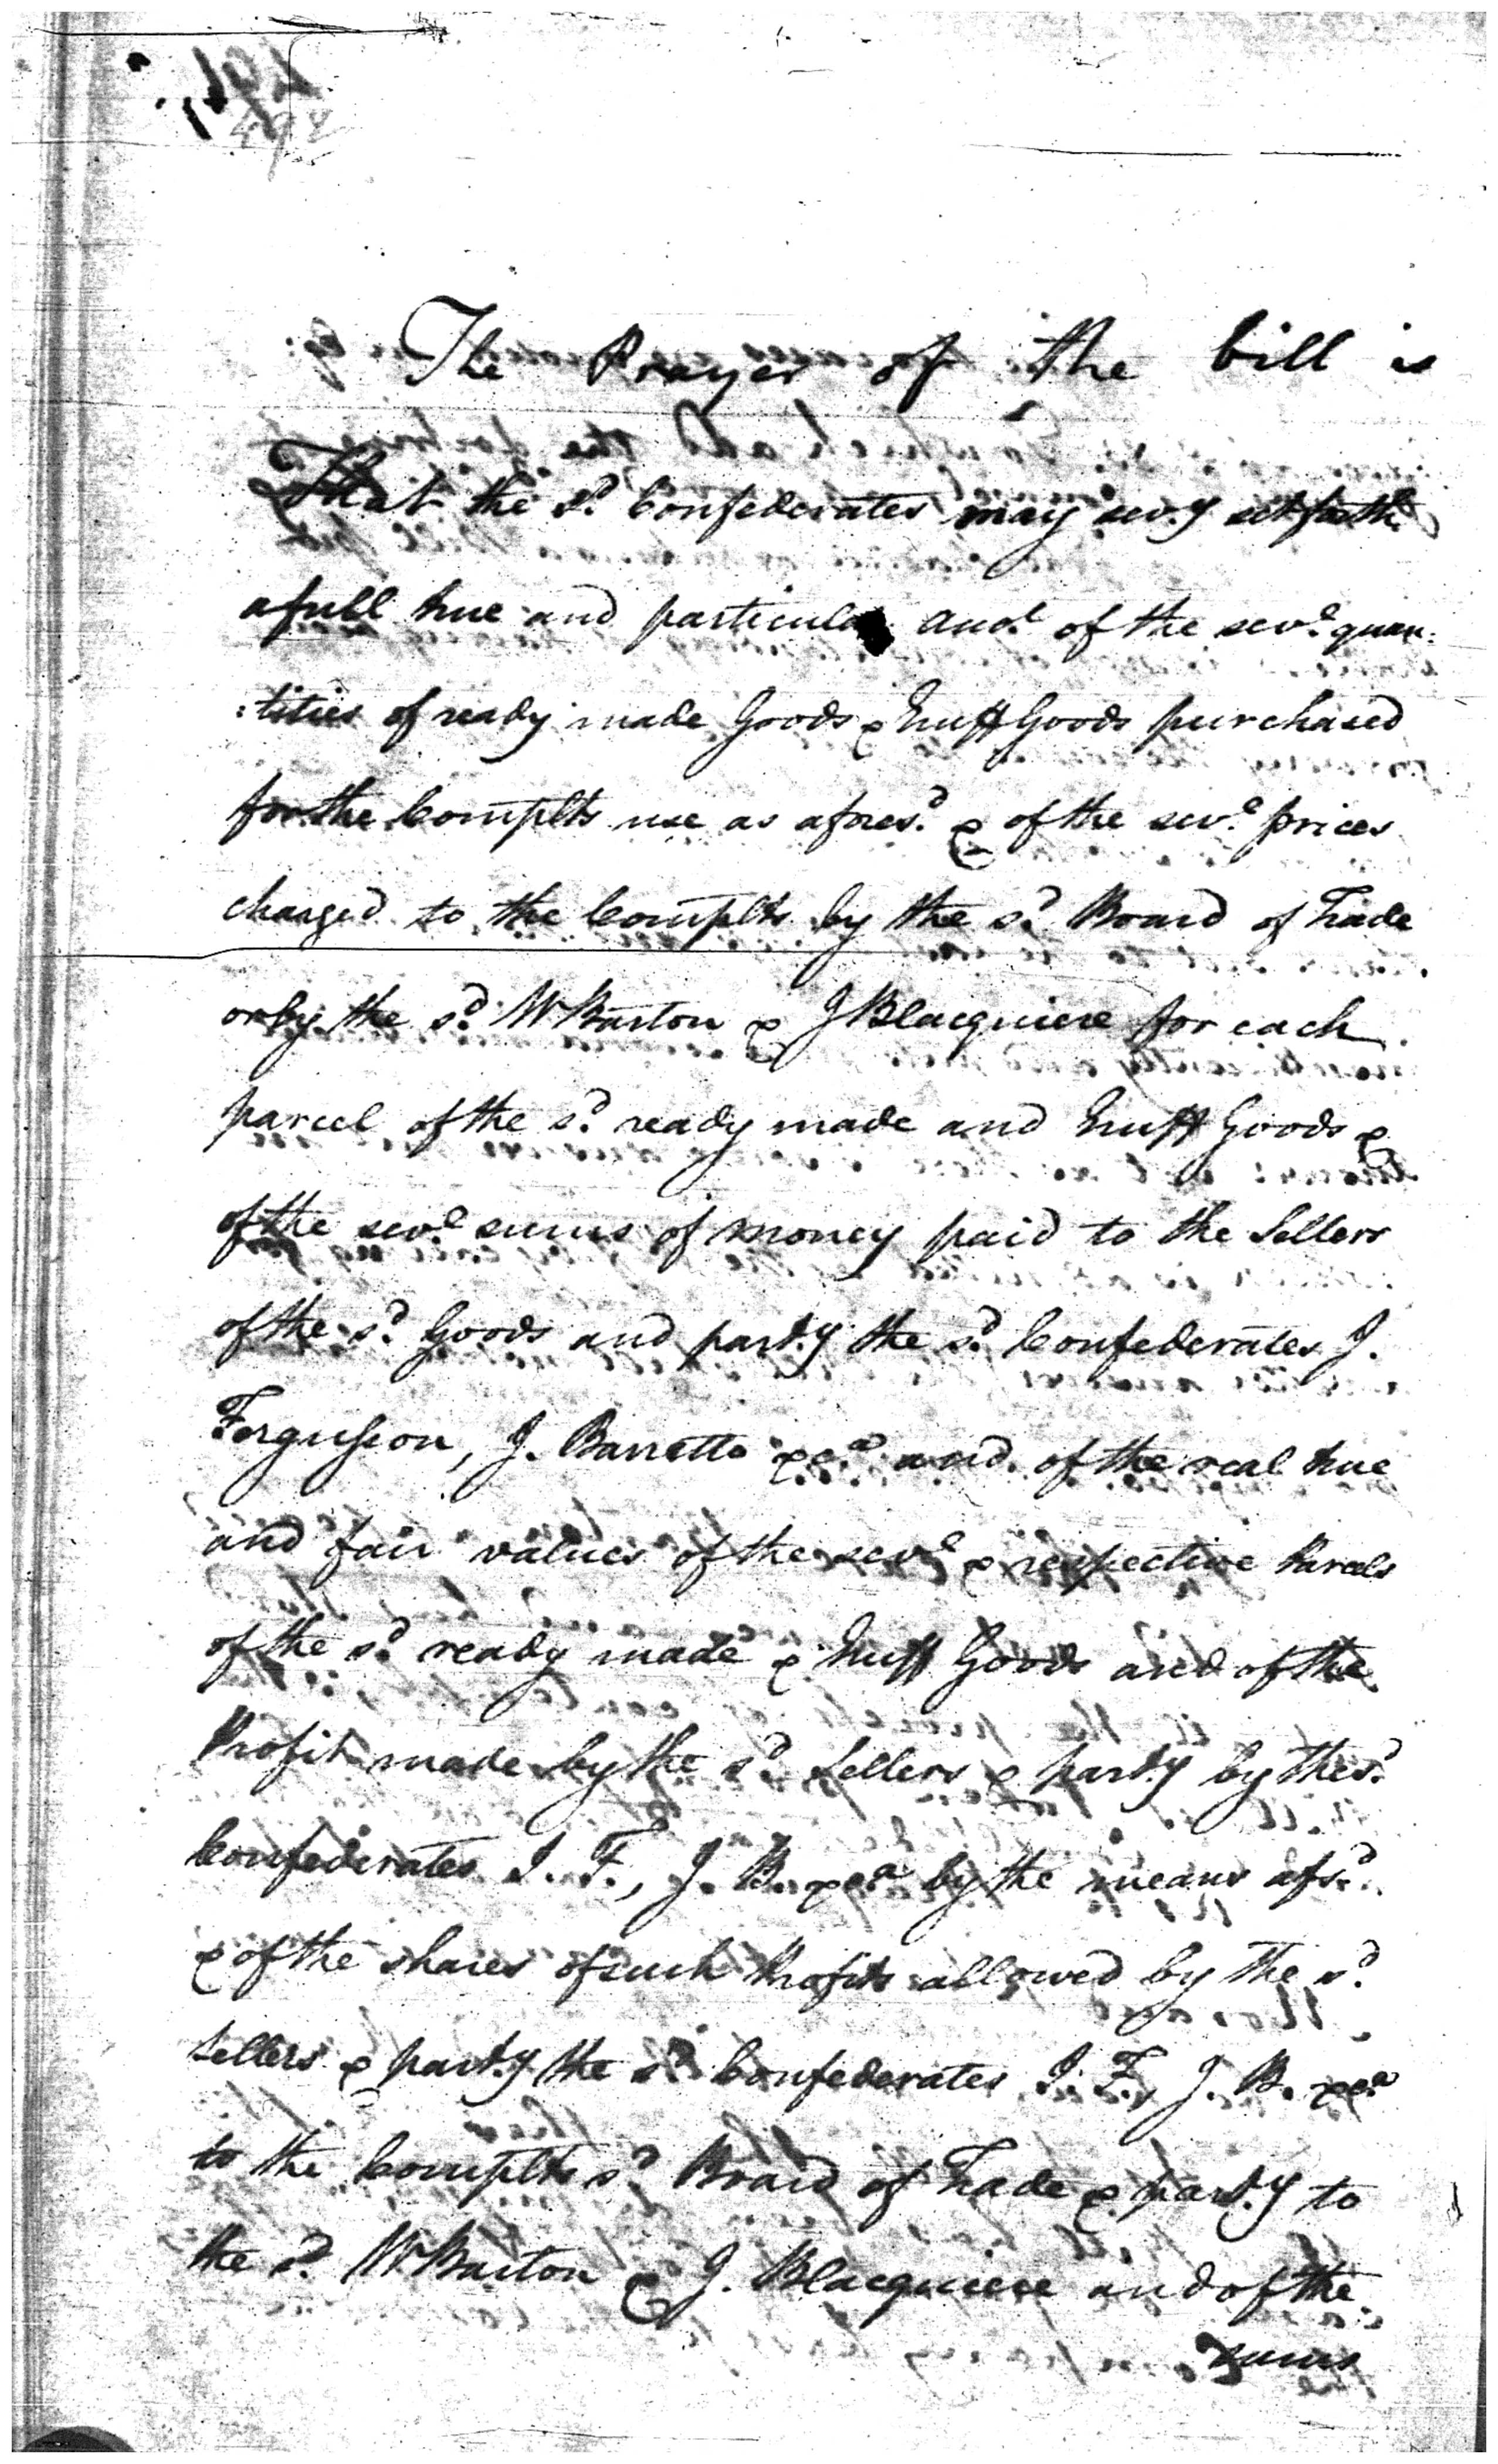 The Prayer of the bill is
That the sd. Confederates may sevy. set forth
a full true and particular Acct. of the sevl. quan:
:tities of ready made Goods & Puttun Goods purchased
for the Complts use as afores.d & of the sevl. prices
charged to the Complts by the sd. Board of Trade
or by the sd. W Barton & J Blacquiere for each
parcel of the sd. ready made and Goods &
of the sevl. sums of money paid to the Sellers
of the sd. Goods and party. the sd. Confederates J.
Fergusson, J. Barretto &ca. and of the real true
and fair values of the sevl. & respective Parcels
of the sd. ready made & Goods and of the
Profit made by the sd. Sellers & party. by the sd.
Confederates J. F., J. B. &ca by the means afsd.
& of the shares of such Profits allowed by the sd.
Sellers & party. the sd. Confederates J. F., J. B. &ca
to the Complts sd. Board of Trade & party. to
the sd. W Barton & J. Blacquiere and of the
Sums